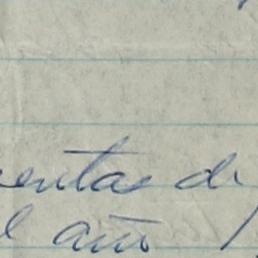 entas de
l año